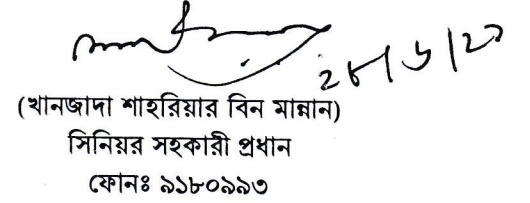 (খানজাদা শাহরিয়ার বিন মান্নান)
সিনিয়র সহকারী প্রধান
ফোনঃ ৯১৮০৯৯৩